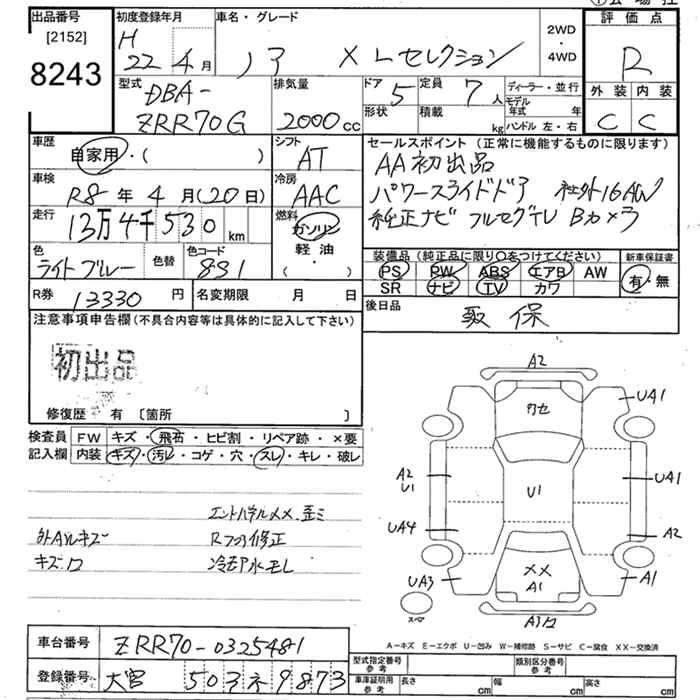 出品番号
[2152]
8243
初度登録年月
H 22年4月
車名・グレード
ノア X Lセレクション
2WD
・
4WD
評価点
R
外装 内装
C C
型式
DBA-
ZRR70G
排気量
2000cc
ドア 5
定員 7人
形状
積載 kg
ディーラー・並行
モデル年式 年
ハンドル 左・右
車歴
自家用・( )
シフト
AT
セールスポイント(正常に機能するものに限ります)
AA初出品
パワースライドドア 社外16AW
純正ナビ フルセグTV Bカメラ
車検
R8年4月(20日)
冷房
AAC
走行
13万4千530km
燃料
ガソリン
軽油
( )
色
ライトブルー
色替
色コード
8S1
装備品(純正品に限り○をつけてください)
PS PW ABS エアB AW
SR ナビ TV カワ
新車保証書
有・無
R券 13330円
名変期限 月 日
後日品
取 保
注意事項申告欄(不具合内容等は具体的に記入して下さい)
初出品
修復歴 有〔箇所 〕
検査員記入欄
FW キズ・飛石・ヒビ割・リペア跡・×要
内装 キズ・汚レ・コゲ・穴・スレ・キレ・破レ
外AWキズ
キズ、ワ
エンドパネル××.歪ミ
Rフロの修正
冷却水モレ
A2
UA1
カセ
A2
U1
UA1
U1
UA4
A2
××
A1
UA3
A1
スペア
A1ワ
A-キズ E-エクボ U-凹み W-補修跡 S-サビ C-腐食 XX-交換済
車台番号 ZRR70-0325481
登録番号 大宮 503 ネ 9873
型式指定番号
参考
類別区分番号
参考
車庫証明用
参考
長さ cm
幅 cm
高さ cm